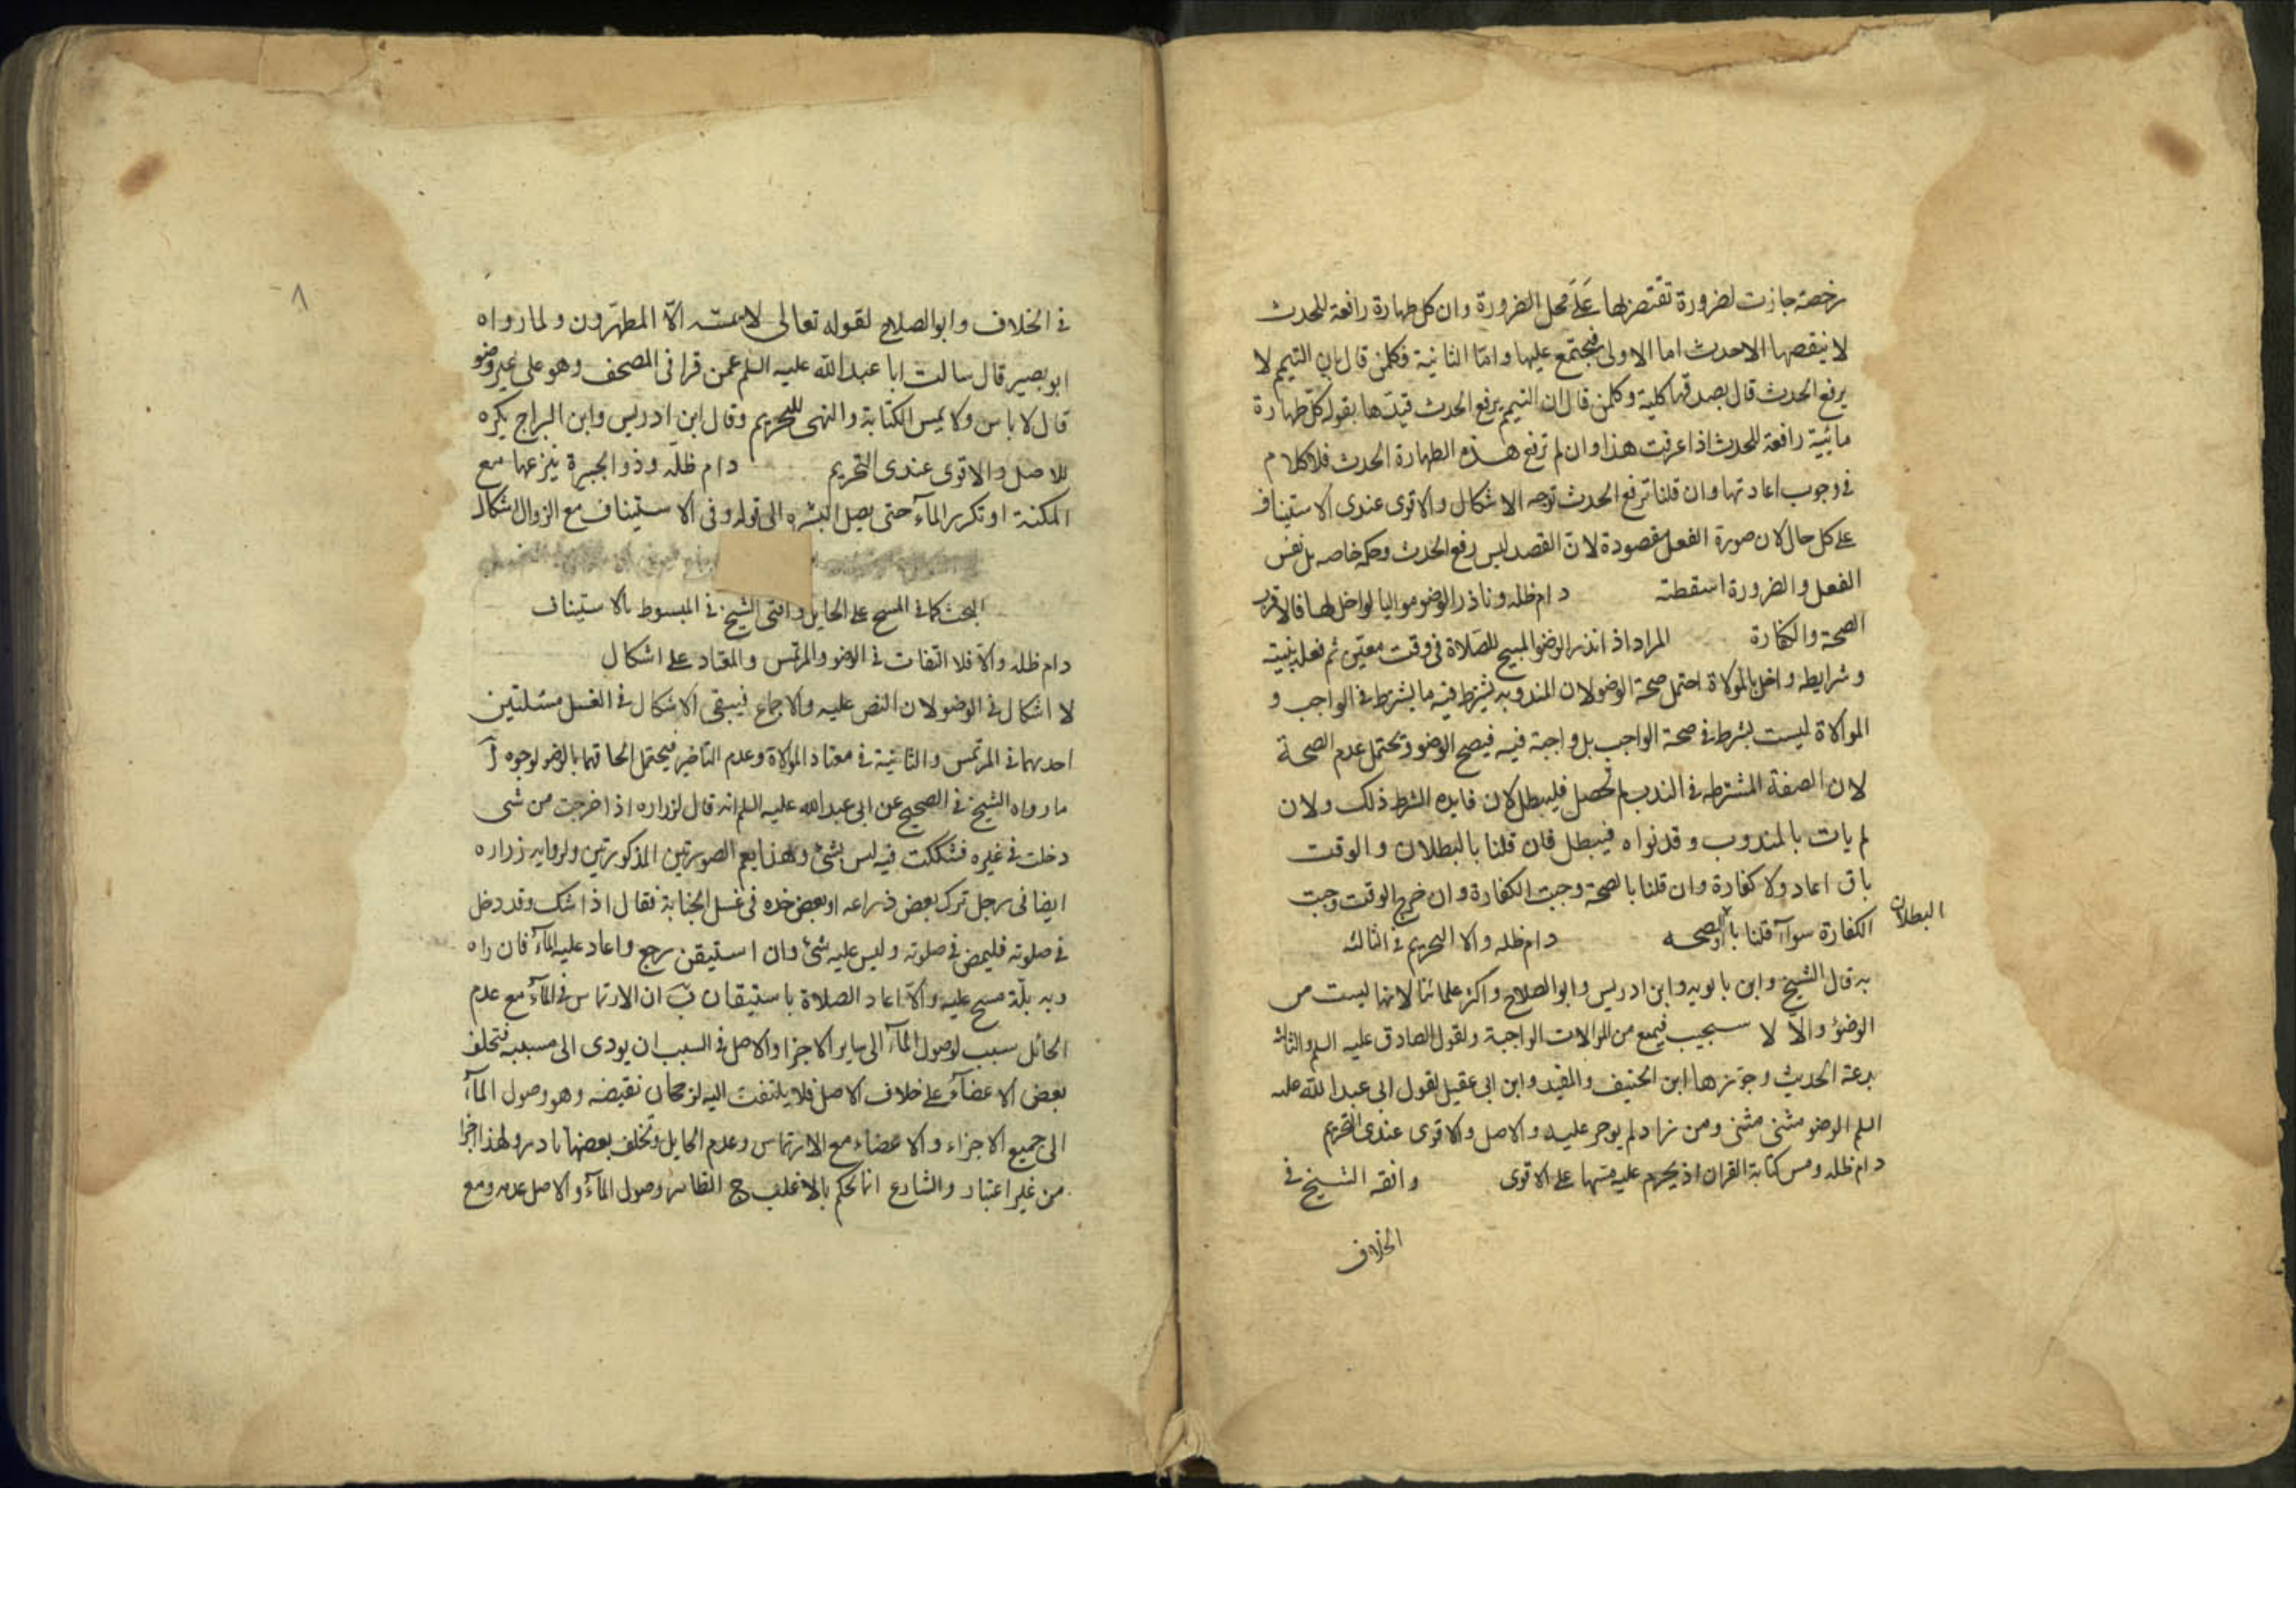 رخصة جازت لضرورة تقتصر لها على محل الضرورة وان كل طهارة رافعة للحدث
لا ينقصها الا حدث اما الاولى فمجتمع عليها واما الثانية فكلمن قال بان التيمم لا
يرفع الحدث قال بصدقها كلية وكلمن قال ان التيمم يرفع الحدث قيدها بقوله كل طهارة
مائية رافعة للحدث اذا عرفت هذا وان لم ترفع هذه الطهارة الحدث فلا كلام
في وجوب اعادتها وان قلنا ترفع الحدث توجه الاشكال والاقوى عندى الاستيناف
على كل حال لان صورة الفعل مقصودة لان القصد ليس رفع الحدث وحكمه خاصه بل نفس
الفعل والضرورة اسقطته دام ظله وناذر الوضو مواليا لو اخل لها فالاقرب
الصحة والكفارة المراد اذا نذر الوضو المبيح للصلاة فى وقت معين ثم فعله بنيته
وشرايطه واخل بالموالاة احتمل صحة الوضو لان المندوب يشترط فيه ما يشترط في الواجب و
الموالاة ليست بشرط في صحة الواجب بل واجبة فيه فيصح الوضو ويحتمل عدم الصحة
لان الصفة المشترطه في الندب لم تحصل فليبطل لان فايده الشرط ذلك ولان
لم يات بالمندوب وقد نواه فيبطل فان قلنا بالبطلان والوقت
باق اعاد ولا كفارة وان قلنا بالصحة وجبت الكفارة وان خرج الوقت وجبت
الكفارة سوآء قلنا با او الصحه دام ظله والا التحريم في الثالثه
البطلان
به قال الشيخ وابن بابويه وابن ادريس وابو الصلاح واكثر علمائنا لانها ليست من
الوضؤ والا لا سيجيب فيمنع من الموالات الواجبة ولقول الصادق عليه السلم والثالث
بدعة الحديث وجوزها ابن الجنيد والمفيد وابن ابى عقيل لقول ابى عبد الله عليه
السلم الوضو مثنى مثنى ومن زاد لم يوجر عليه والاصل والاقوى عندى التحريم
دام ظله ومس كتابة القران اذ يحرم عليه مسها على الاقوى وافقه الشيخ في
الخلاف
٨
في الخلاف وابو الصلاح لقوله تعالى لا يمسه الّا المطهّرون ولما رواه
ابو بصير قال سالت ابا عبد الله عليه السلم عمن قرا فى المصحف وهو على غير وضو
قال لا باس ولا يمس الكتابة والنهى للتحريم وقال ابن ادريس وابن البراج يكره
للاصل والاقوى عندى التحريم دام ظله وذو الجبيرة ينزعها مع
المكنة او تكرر المآء حتى يصل البشره الى قوله وفى الاستيناف مع الزوال اشكال
البحث كما في المسح على الحايل وافتى الشيخ في المبسوط بالاستيناف
دام ظله والا فلا التفات في الوضو والمرتمس والمعتاد على اشكال
لا اشكال في الوضو لان النص عليه والاجماع فيبقى الاشكال في الغسل مسئلتين
احديهما في المرتمس والثانية في معتاد الموالاة وعدم التاخير فيحتمل الحاقهما بالوضو لوجوه آ
ما رواه الشيخ في الصحيح عن ابى عبد الله عليه السلم انه قال لزراره اذا خرجت من شى
دخلت في غيره فشككت فيه ليس بشئ وهذا يعم الصورتين المذكورتين ولروايه زراره
ايضا فى رجل ترك بعض ذراعه او بعض خده فى غسل الجنابة فقال اذا شك وقد دخل
في صلوته فليمض في صلوته وليس عليه شئ وان استيقن رجع واعاد عليه المآء فان راه
وبه بلّة مسح عليه والا اعاد الصلاة باستيقان ب ان الارتماس في المآء مع عدم
الحائل سبب لوصول المآء الى ساير الاجزا والاصل في السبب ان يودى الى مسببه فتخلف
بعض الاعضآء على خلاف الاصل فلا يلتفت اليه لرجحان نقيضه وهو وصول المآء
الى جميع الاجزاء والاعضاء مع الارتماس وعدم الحايل وتخلف بعضها نادر ولهذا اجزا
من غير اعتبار والشارع انما يحكم بالاغلب ج الظاهر وصول المآء والاصل عدمه ومع